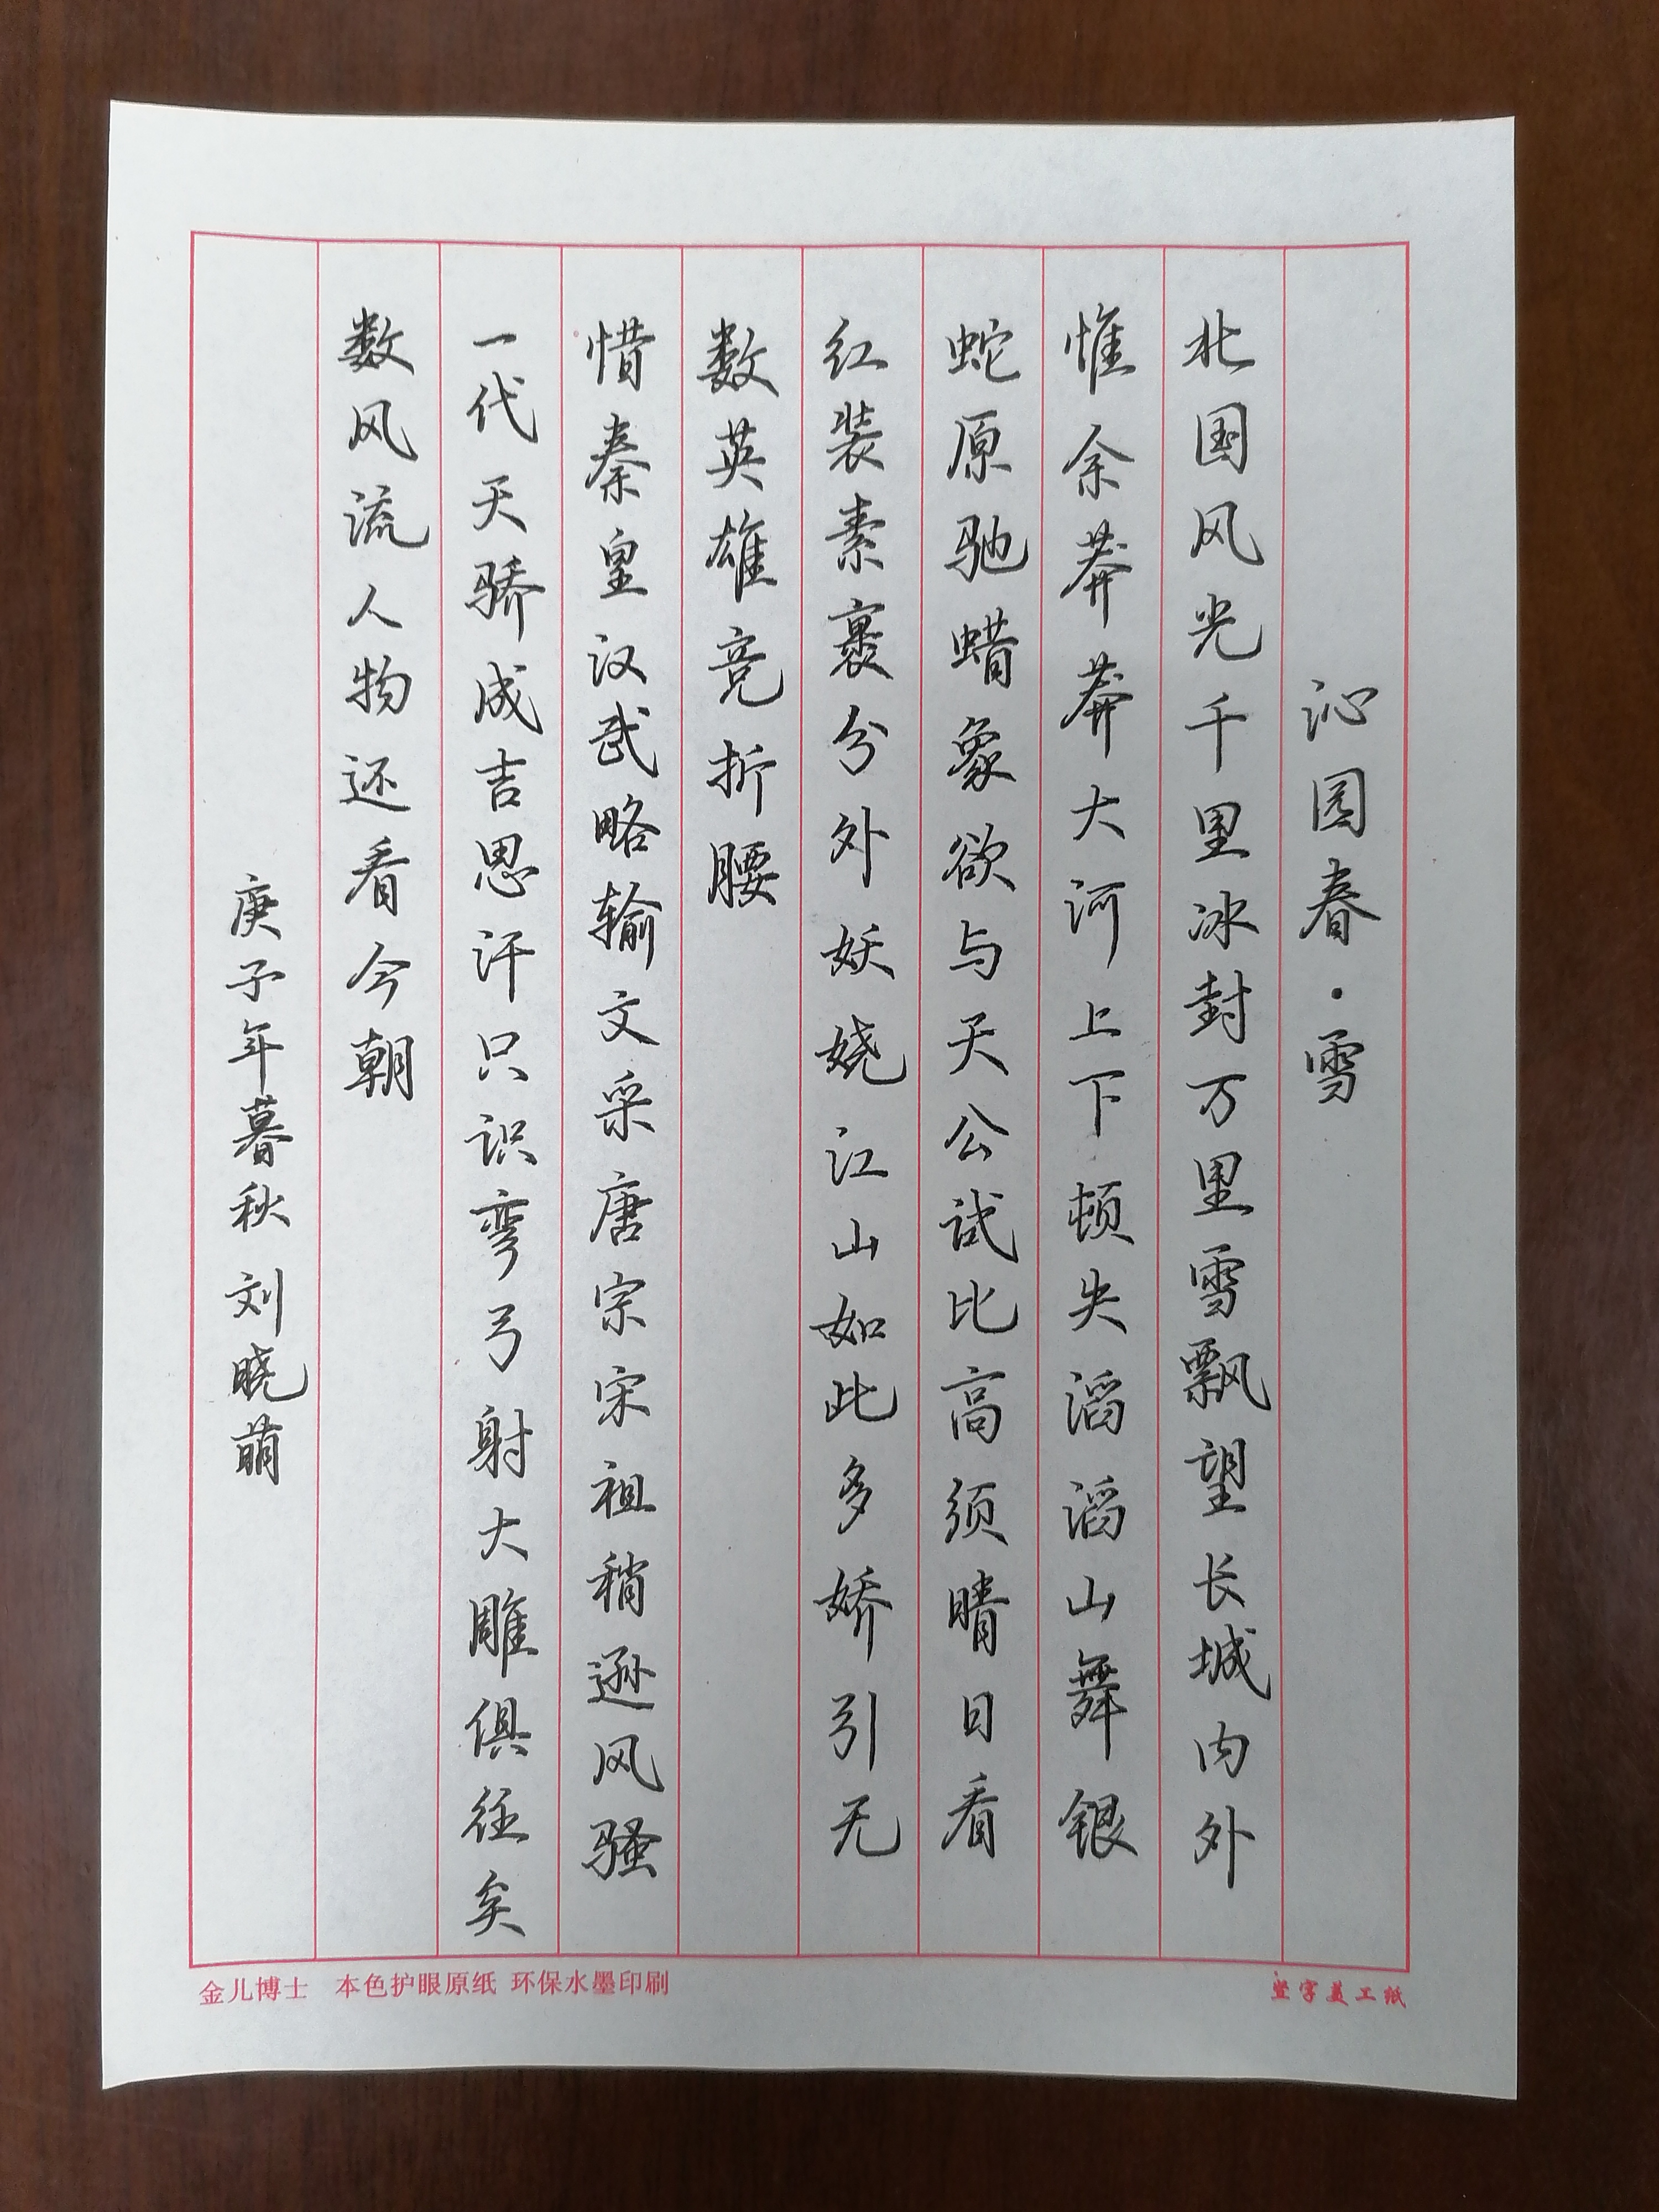 沁园春·雪
北国风光千里冰封万里雪飘望长城内外
惟余莽莽大河上下顿失滔滔山舞银
蛇原驰蜡象欲与天公试比高须晴日看
红装素裹分外妖娆江山如此多娇引无
数英雄竞折腰
惜秦皇汉武略输文采唐宗宋祖稍逊风骚
一代天骄成吉思汗只识弯弓射大雕俱往矣
数风流人物还看今朝
庚子年暮秋 刘晓萌
金儿博士 本色护眼原纸 环保水墨印刷
坚字美工纸